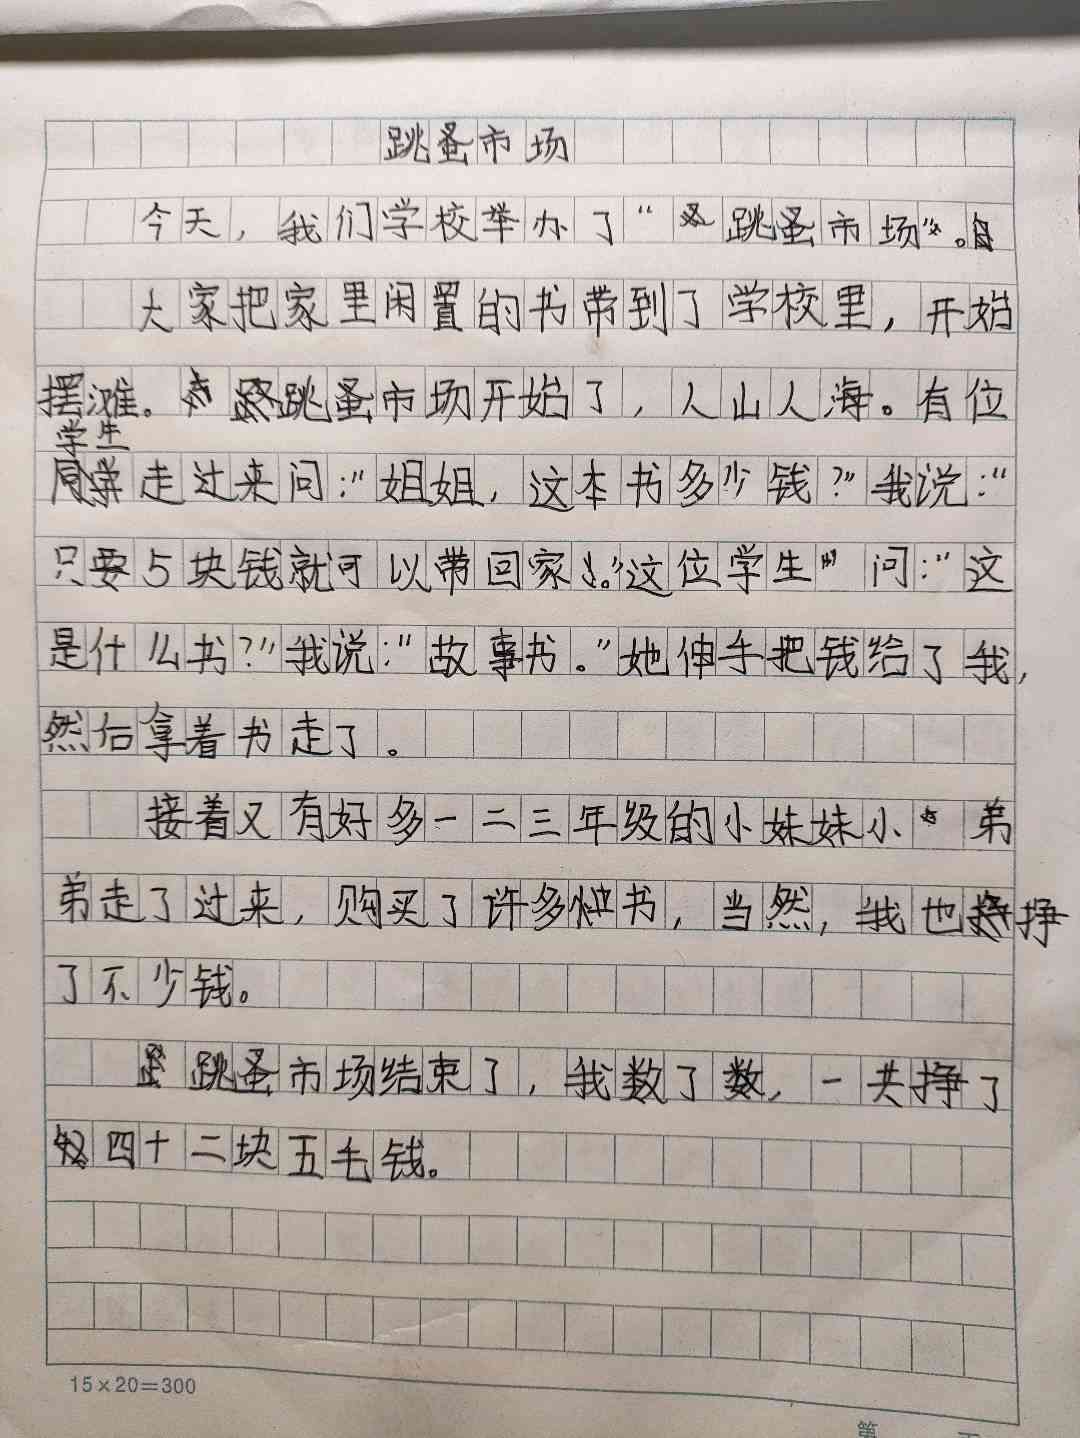 跳蚤市场
今天，我们学校举办了“跳蚤市场”。
大家把家里闲置的书带到了学校里，开始
摆滩。跳蚤市场开始了，人山人海。有位
学生
走过来问：“姐姐，这本书多少钱？”我说：“
只要5块钱就可以带回家。”这位学生问：“这
是什么书？”我说：“故事书。”她伸手把钱给了我，
然后拿着书走了。
接着又有好多一二三年级的小妹妹小弟
弟走了过来，购买了许多书，当然，我也挣
了不少钱。
跳蚤市场结束了，我数了数，一共挣了
四十二块五毛钱。
15×20=300
第